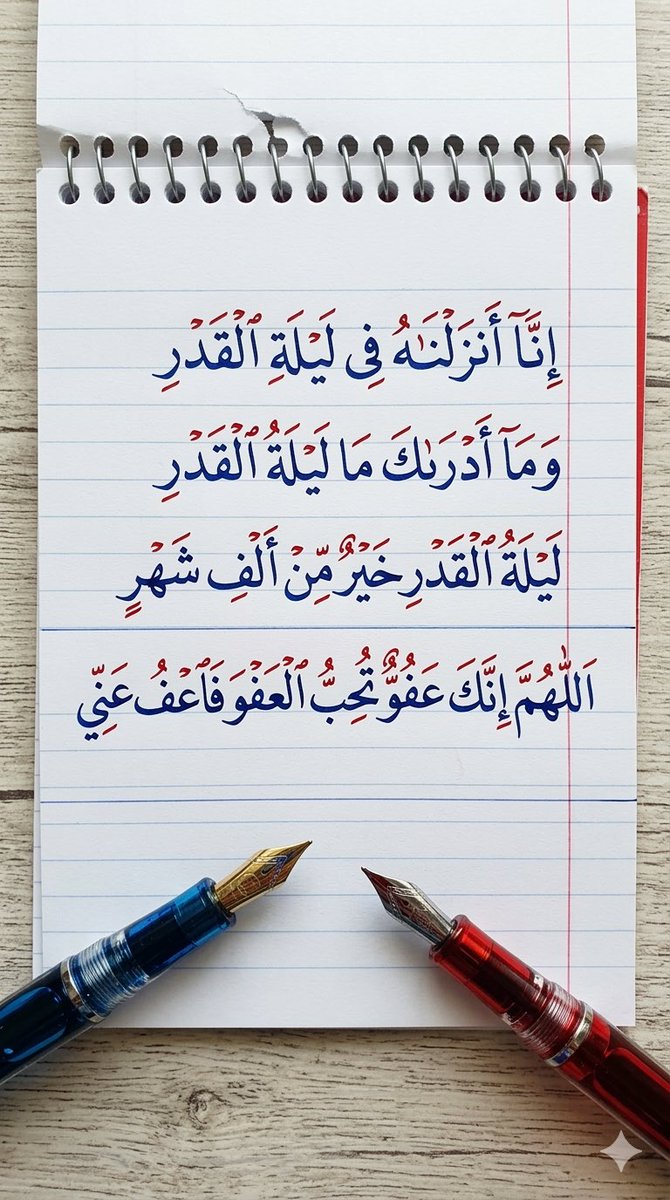 إِنَّآ أَنزَلْنَـٰهُ فِى لَيْلَةِ ٱلْقَدْرِ
وَمَآ أَدْرَىٰكَ مَا لَيْلَةُ ٱلْقَدْرِ
لَيْلَةُ ٱلْقَدْرِ خَيْرٌ مِّنْ أَلْفِ شَهْرٍ
اَللّٰهُمَّ إِنَّكَ عَفُوٌّ تُحِبُّ ٱلْعَفْوَ فَٱعْفُ عَنِّي